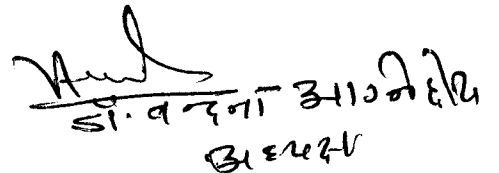 डॉ. वन्दना अग्निहोत्री
अध्यक्ष